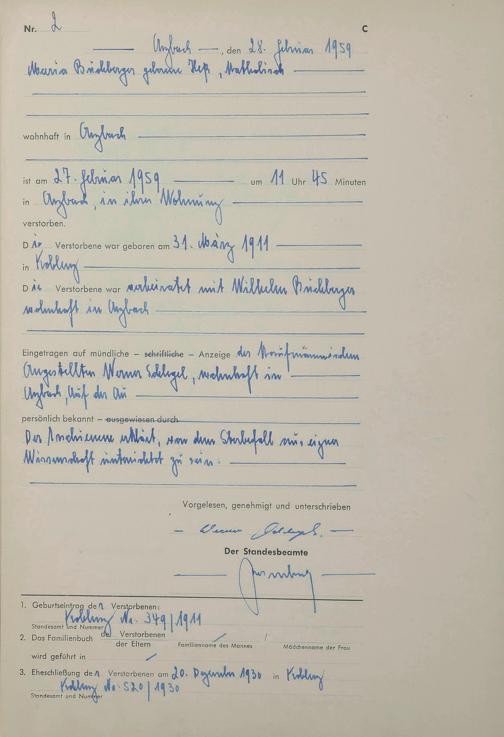 Nr. 2 C
Asbach, den 28. Februar 1959
Maria Buchberger geborene Heß, katholisch
wohnhaft in Asbach
ist am 27. Februar 1959 um 11 Uhr 45 Minuten
in Asbach, in ihrer Wohnung
verstorben.
Die Verstorbene war geboren am 31. März 1911
in Koblenz
Die Verstorbene war verheiratet mit Wilhelm Buchberger
wohnhaft in Asbach
Eingetragen auf mündliche – schriftliche – Anzeige des kaufmännischen
Angestellten Werner Schlegel, wohnhaft in
Asbach, Auf der Au
persönlich bekannt – ausgewiesen durch
Der Anzeigende erklärt, von dem Sterbefall aus eigner
Wissenschaft unterrichtet zu sein.
Vorgelesen, genehmigt und unterschrieben
Werner Schlegel
Der Standesbeamte
1. Geburtseintrag der Verstorbenen:
Koblenz No. 349/1911
Standesamt und Nummer
2. Das Familienbuch der Verstorbenen
der Eltern Familienname des Mannes / Mädchenname der Frau
wird geführt in
3. Eheschließung der Verstorbenen am 20. Dezember 1930 in Koblenz
Koblenz No. 520/1930
Standesamt und Nummer